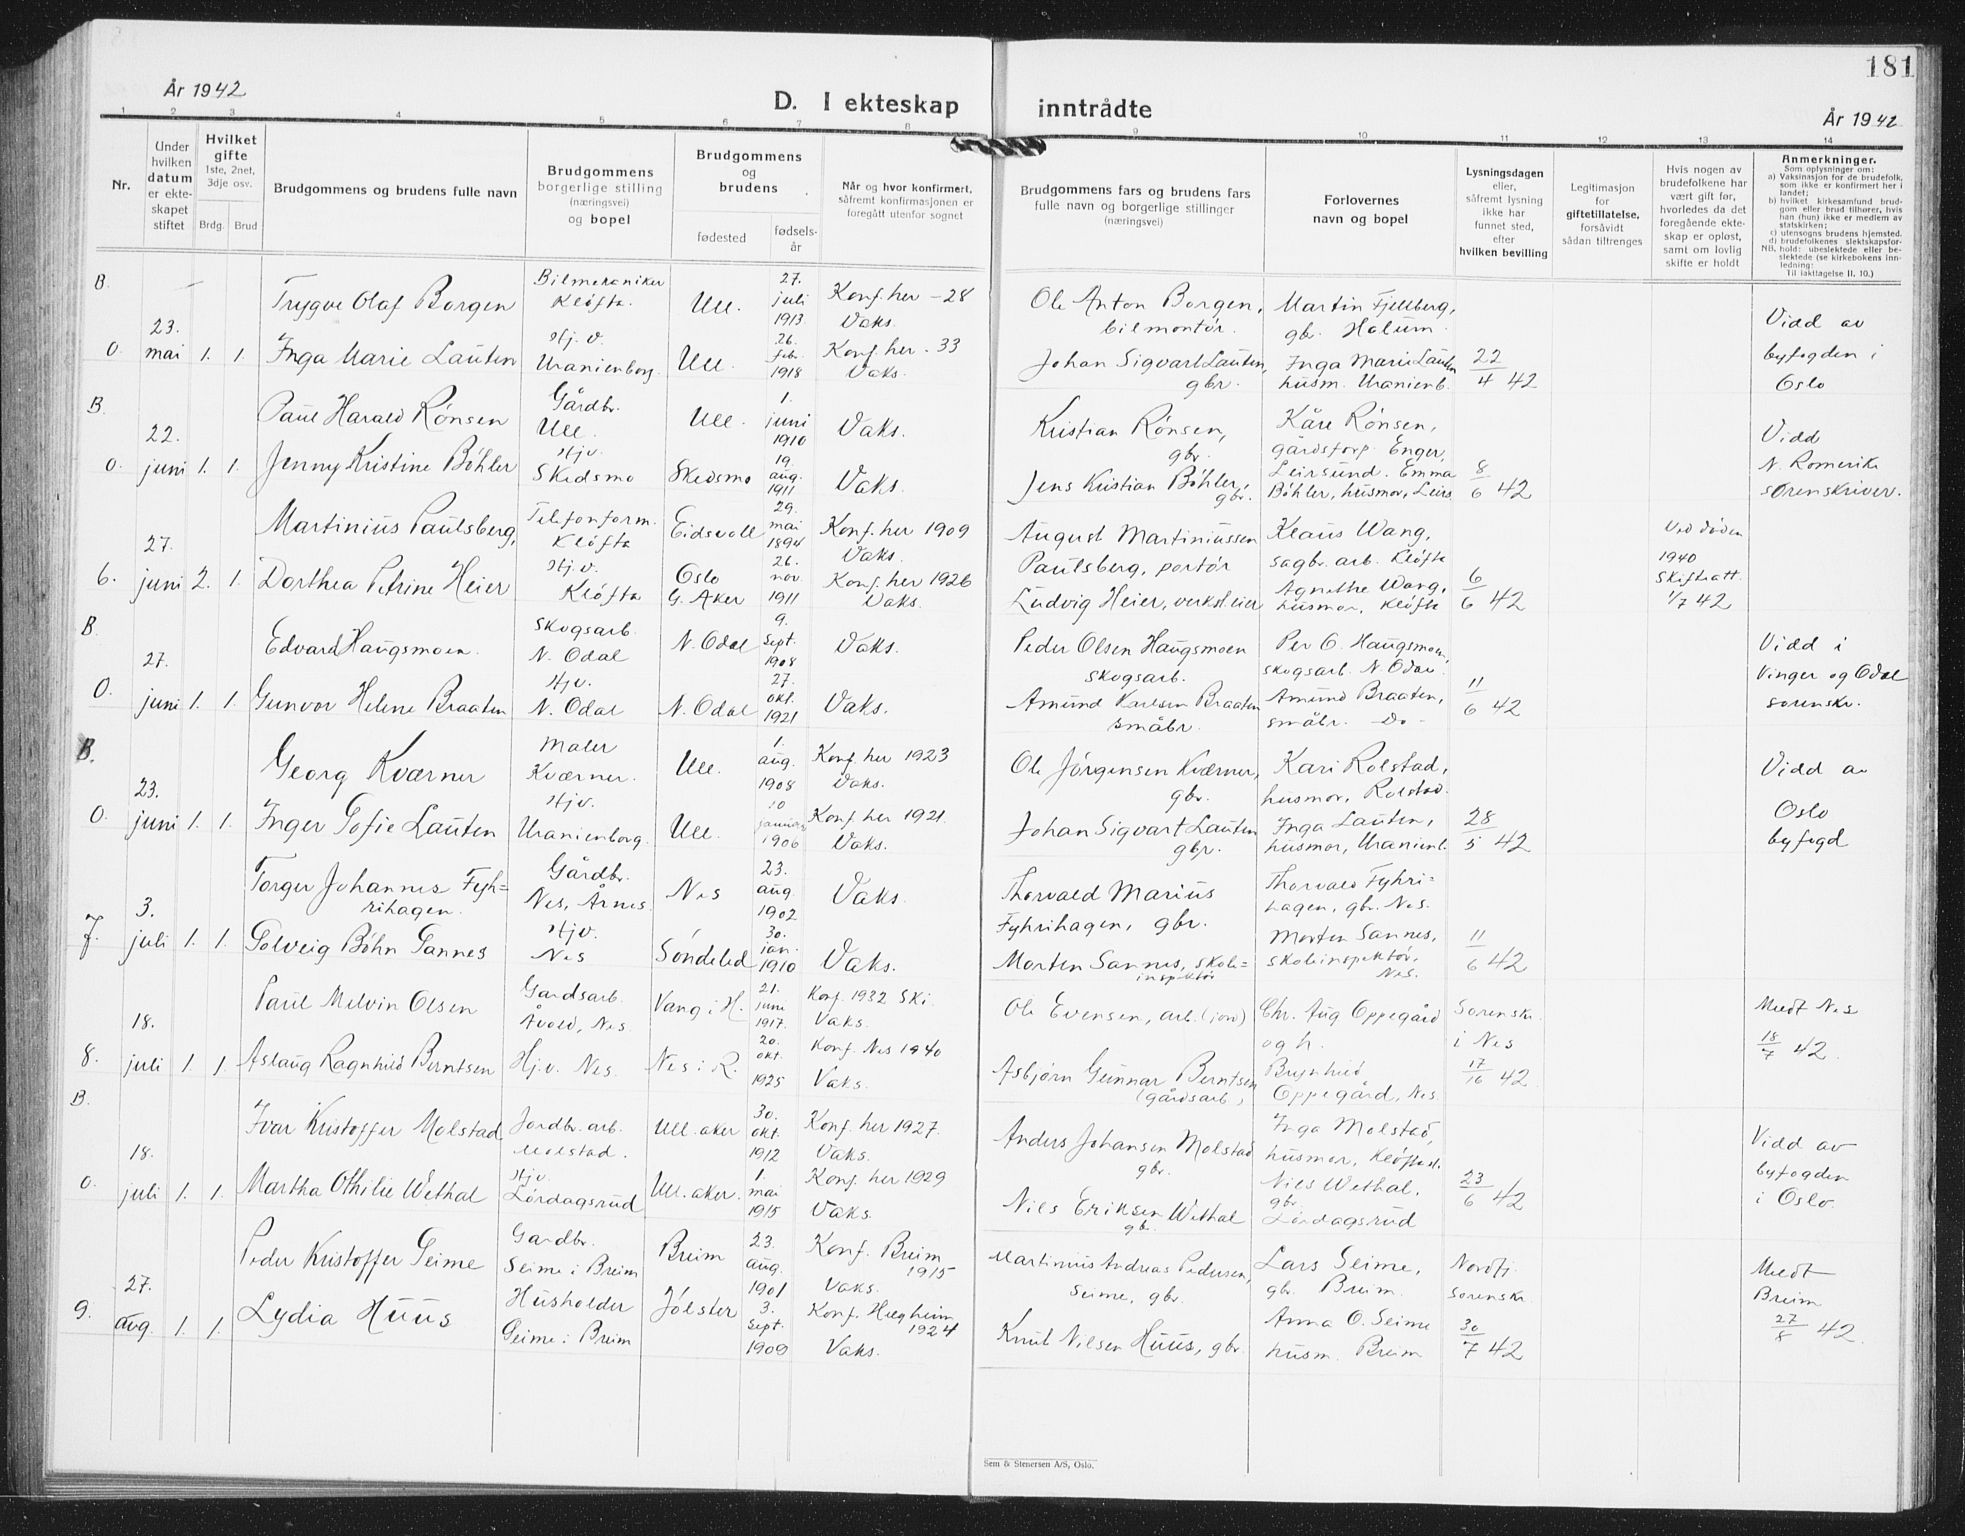 181
År 1942
D. I ekteskap inntrådte
År 1942
1 2 3 4 5 6 7 8 9 10 11 12 13 14
Nr.
Under hvilken datum er ekteskapet stiftet
Hvilket gifte 1ste, 2net, 3dje osv.
Brdg. Brud
Brudgommens og brudens fulle navn
Brudgommens borgerlige stilling (næringsvei) og bopel
Brudgommens og brudens
fødested
fødselsår
Når og hvor konfirmert, såfremt konfirmasjonen er foregått utenfor sognet
Brudgommens fars og brudens fars fulle navn og borgerlige stillinger (næringsvei)
Forlovernes navn og bopel
Lysningsdagen eller, såfremt lysning ikke har funnet sted, efter hvilken bevilling
Legitimasjon for giftetillatelse, forsåvidt sådan tiltrenges
Hvis nogen av brudefolkene har vært gift før, hvorledes da det foregående ekteskap er opløst, samt om lovlig skifte er holdt
Anmerkninger.
Som oplysninger om:
a) Vaksinasjon for de brudefolk, som ikke er konfirmert her i landet;
b) hvilket kirkesamfund brudgom eller brud tilhører, hvis han (hun) ikke er medlem av statskirken;
c) utensogns brudens hjemsted.
d) brudefolkenes slektskapsforhold: ubeslektede eller beslektede (se kirkebokens innledning:
NB.
Til iakttagelse II. 10.)
B.
Trygve Olaf Borgen
Bilmekaniker Kløfta
Ull.
27. juli 1913
Konf. her -28 Vaks.
Ole Anton Borgen, bilmontør.
Martin Fjellberg, gbr. Holum.
Vidd av byfogden i Oslo
O. 23. mai 1. 1.
Inga Marie Lauten
Hj. v. Uranienborg.
Ull.
26. feb. 1918
Konf. her - 33 Vaks.
Johan Sigvart Lauten, gbr.
Inga Marie Lauten husm. Uranienb.
22/4 42
B.
Paul Harald Rønsen
Gårdbr. Ull.
Ull.
1. juni 1910
Vaks.
Kristian Rønsen, gbr.
Kåre Rønsen, gårdsforp. Enger,
Vidd N. Romerike sorenskriver.
O. 22. juni 1. 1.
Jenny Kristine Bøhler
Hjv. Skedsmo
Skedsmo
19. aug. 1911
Vaks.
Jens Kristian Bøhler, gbr.
Leirsund. Emma Bøhler, husmor, Leirs
8/6 42
Martinius Paulsberg,
Telefonform. Kløfta
Eidsvoll
29. mai 1894
Konf. her 1909 Vaks.
August Martiniussen Paulsberg, portør
Klaus Wang, sagbr. arb. Kløfta
Ved døden 1940 Skifteatt. 1/7 42
6. 27. juni 2. 1.
Dorthea Petrine Heier
Hj. v. Kløfta
Oslo G. Aker
26. nov. 1911
Konf. her 1926 Vaks.
Ludvig Heier, verksteier
Agnethe Wang, husmor, Kløfta
6/6 42
B.
Edvard Haugsmoen.
Skogsarb. N. Odal
N. Odal
9. sept. 1908
Vaks.
Peder Olsen Haugsmoen skogsarb.
Per O. Haugsmoen, skogsarb. N. Odal
Vidd i Vinger og Odal sorenskr.
O. 27. juni 1. 1.
Gunvor Helene Braaten
Hjv. N. Odal
N. Odal
27. okt. 1921
Vaks.
Amund Karlsen Braaten småbr.
Amund Braaten, småbr. - Do -
11/6 42
B.
Georg Kværner
Maler Kværner.
Ull.
1. aug. 1908
Konf. her 1923 Vaks.
Ole Jørgensen Kværner, gbr.
Kari Rolstad, husmor, Rolstad.
Vidd av Oslo byfogd
O. 23. juni 1. 1.
Inger Sofie Lauten
Hjv. Uranienborg.
Ull.
10 januar 1906
Konf. her 1921. Vaks.
Johan Sigvart Lauten gbr.
Inga Lauten, husmor, Uranienb.
28/5 42
Torger Johannes Fyhrihagen.
Gårdbr. Nes, Årnes.
Nes
23. aug. 1902
Vaks.
Thorvald Marius Fyhrihagen, gbr.
Thorvald Fyhrihagen, gbr. Nes.
7. 3. juli 1. 1.
Solveig Bøhn Sannes
Hjv. Nes
Søndeled
30. jan. 1910
Vaks.
Morten Sannes, skoleinspektør
Morten Sannes, skoleinspektør, Nes.
11/6 42
Paul Melvin Olsen
Gardsarb. Åvold, Nes.
Vang i H.
21. juni 1917.
Konf. 1932 Ski. Vaks.
Ole Evensen, arb. (jord)
Chr. Aug Oppegård og h.
Sorenskr. i Nes
Medt Nes 18/7 42.
8. 18. juli 1. 1.
Aslaug Ragnhild Berntsen
Hj.v. Nes.
Nes i R.
20. okt. 1925
Konf. Nes 1940 Vaks.
Asbjørn Gunnar Berntsen (gårdsarb,
Brynhild Oppegård, Nes
17/16 42
B.
Ivar Kristoffer Molstad
Jordbr. arb. Molstad.
Ull. aker
30. okt. 1912
Konf. her 1927. Vaks.
Anders Johansen Molstad gbr.
Inga Molstad, husmor, Kløfta st.
Vidd av byfogden i Oslo.
O. 18. juli 1. 1.
Martha Othilie Wethal
Hjv. Lørdagsrud
Ull. aker.
1. mai 1915
Konf. her 1929 Vaks.
Nils Eriksen Wethal gbr.
Nils Wethal, gbr. Lørdagsrud
23/6 42
Peder Kristoffer Seime
Gardbr. Seime i Breim
Breim
23. aug. 1901
Konf. Breim 1915 Vaks.
Martinius Andreas Pedersen, Seime, gbr.
Lars Seime, gbr. Breim.
Nordfj. sorenskr.
Medt Breim 27/8 42.
9. 27. aug. 1. 1.
Lydia Huus
Husholder Seime i Breim
Jølster
3. sept. 1909
Konf. Hægheim 1924 Vaks.
Knut Nilsen Huus, gbr.
Anna O. Seime husm. Breim
30/7 42
Sem & Stenersen A/S, Oslo.